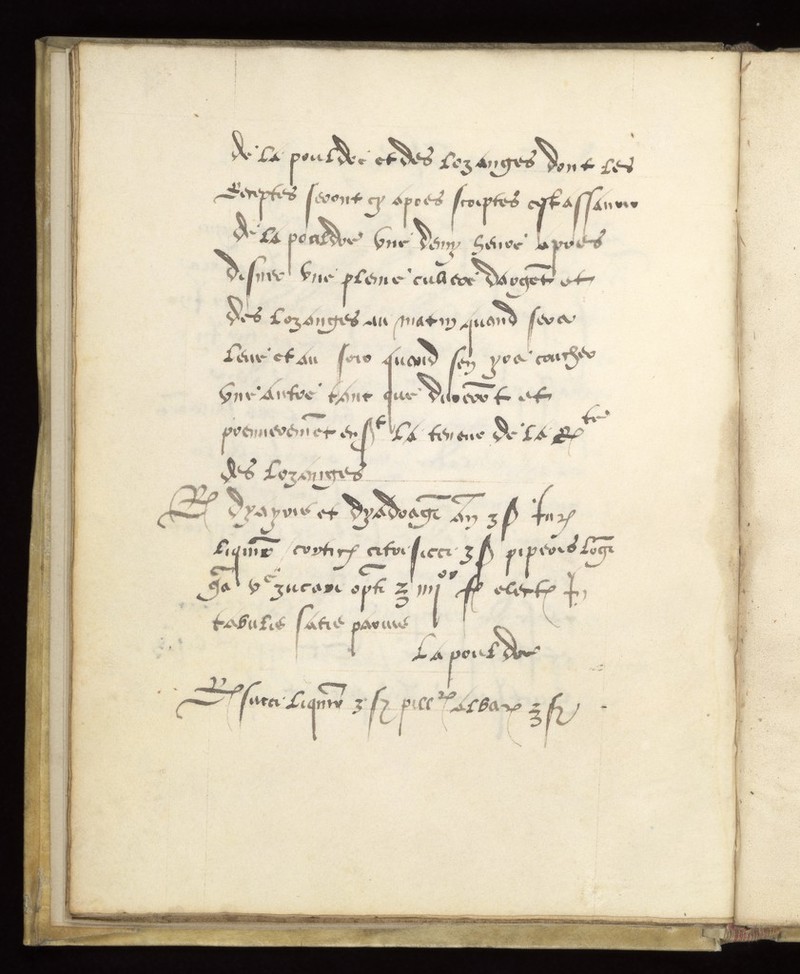 de la pouldre et des lozanges dont les
Receptes seront cy apres scriptes cest assavoir
de la pouldre une demy heure apres
disner une pleine cuillere dargēt et
des lozanges au matin quand sera
leve et au soir quand sen yra coucher
une autre tant que durerōt et
premieremēt ensᵗ la teneur de la Rᵗᵉ
des lozanges
R dyayris et dyadragī an ʒ ß
liquir corticꝭ citri sicci ʒ ß piperis lōgi
zucari optī ʒ iiij electꝭ
tabulis satis parvis
La pouldre
R succi liquir ʒ albar ʒ